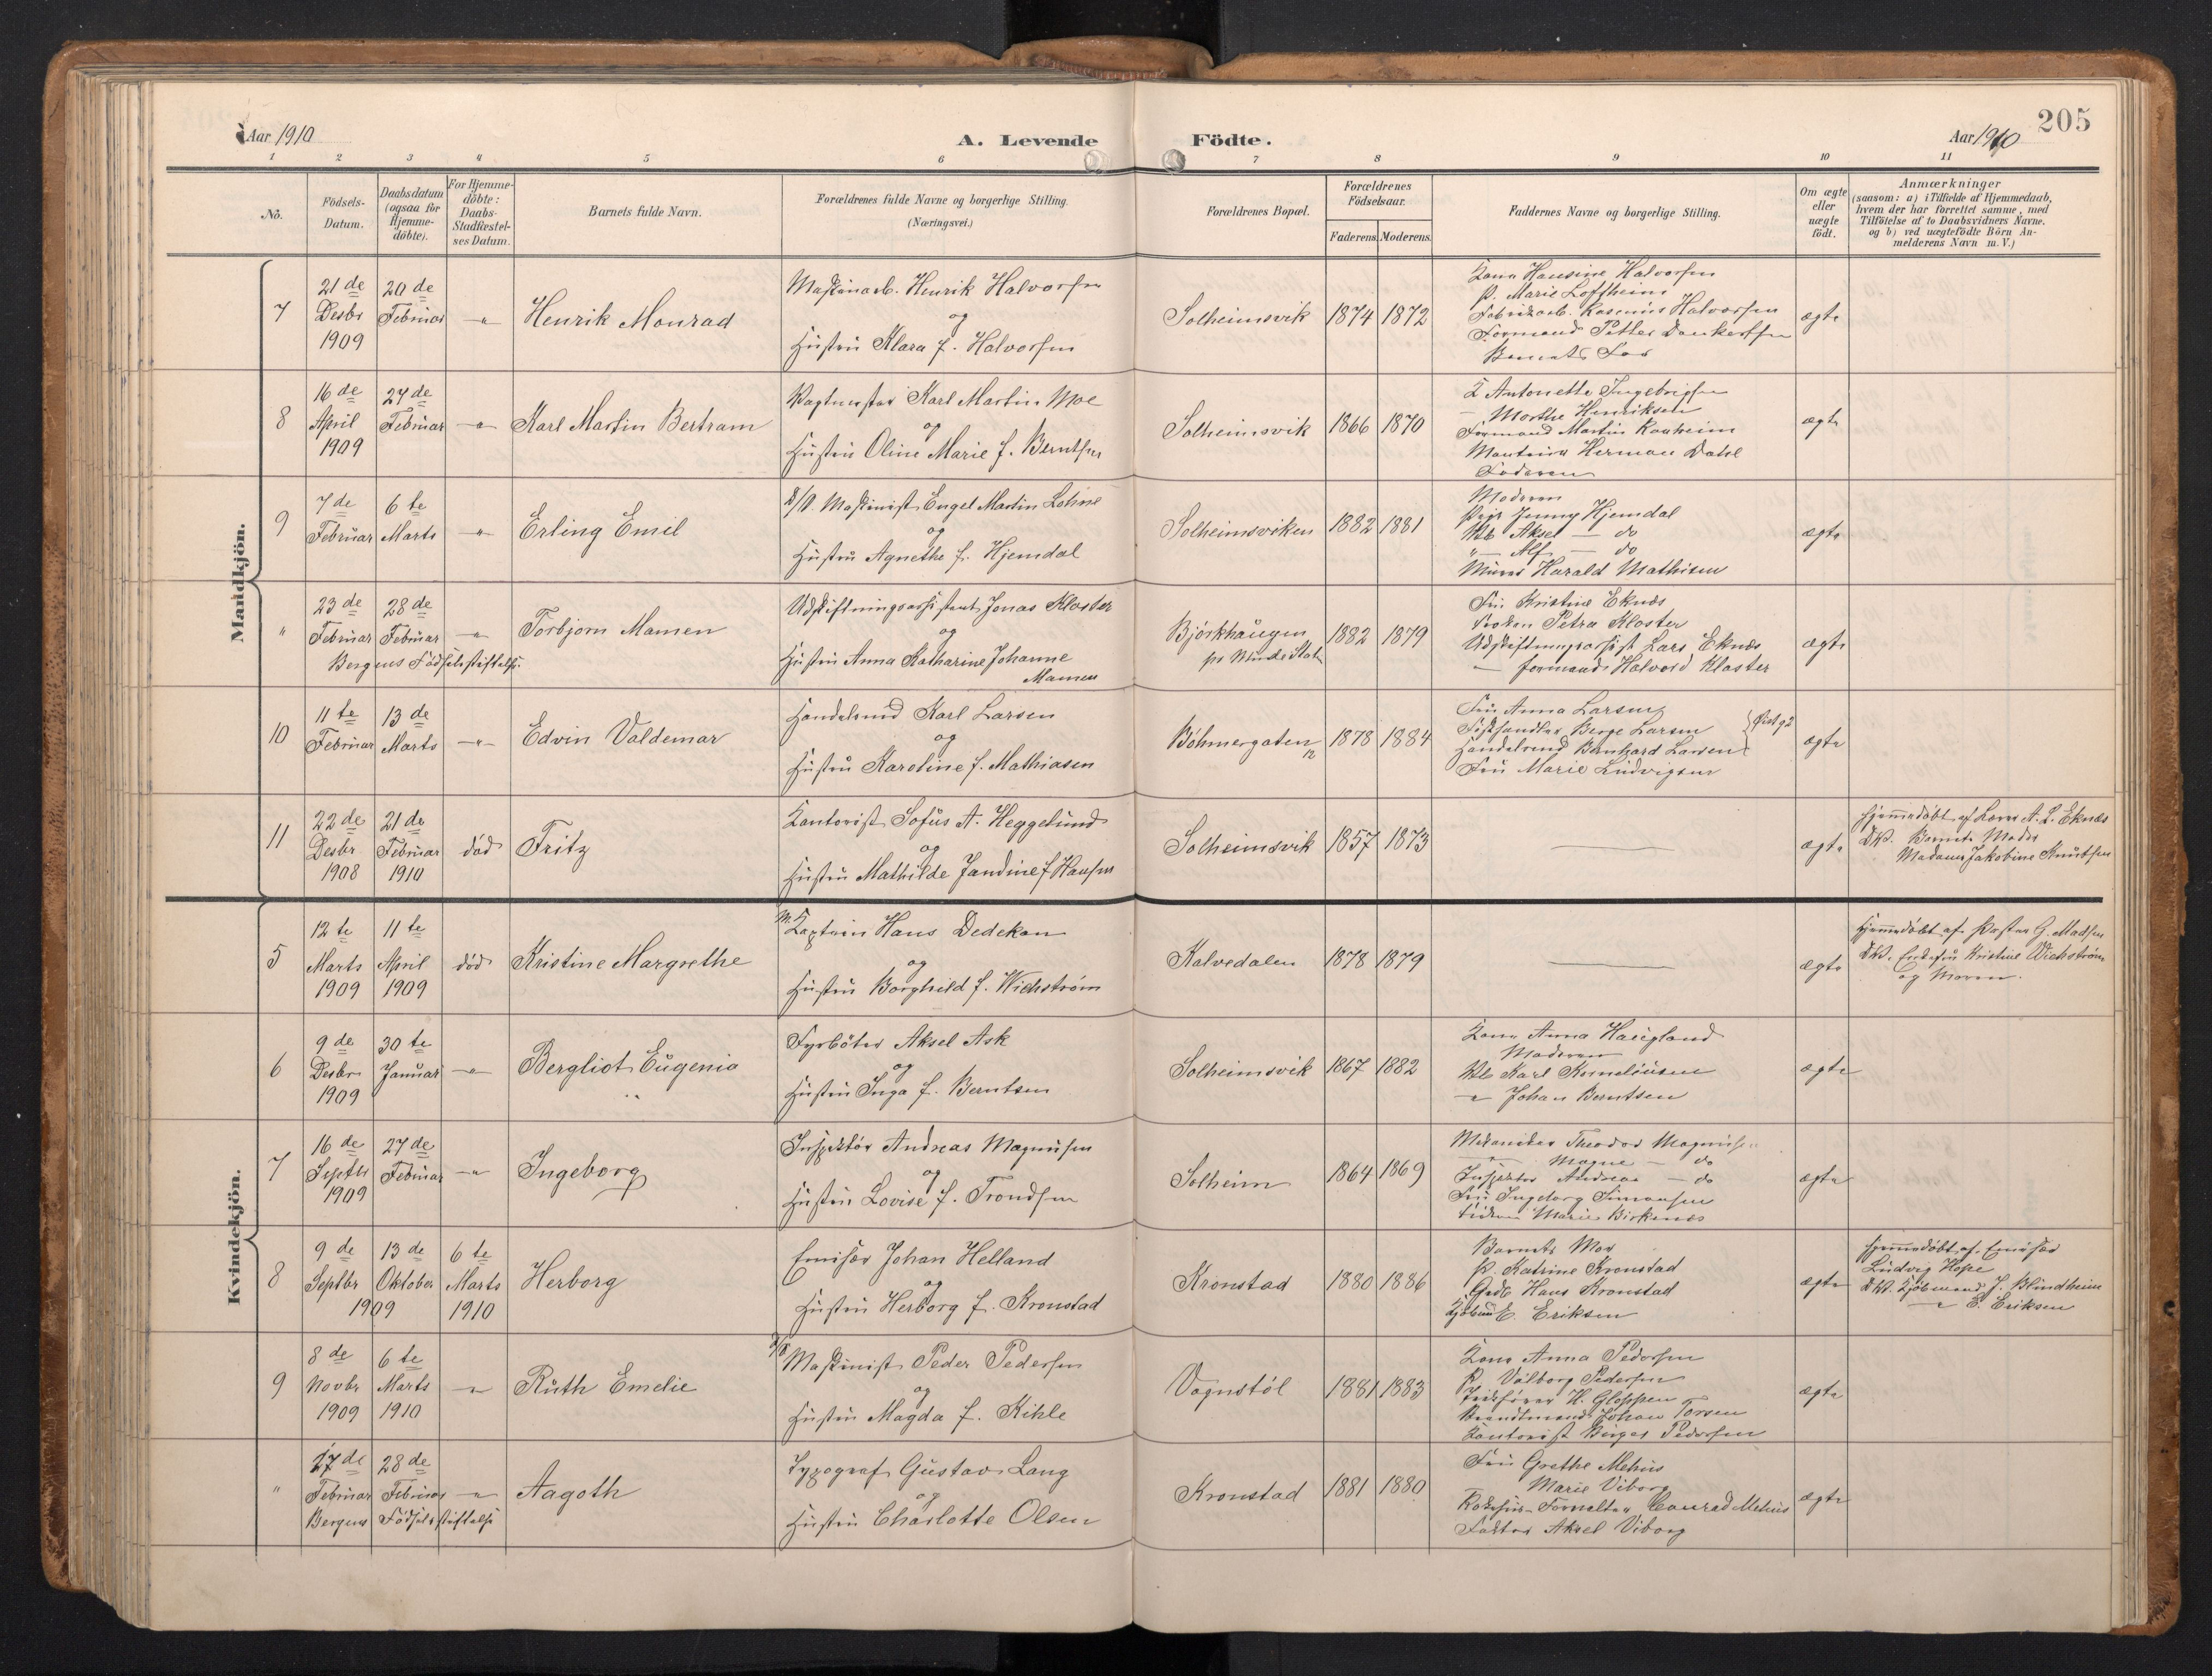 205
Aar 1910
A. Levende Födte.
Aar 1910
1 2 3 4 5 6 7 8 9 10 11
No.
Födsels-
Datum.
Daabsdatum
(ogsaa for
Hjemme-
döbte).
For Hjemme-
döbte:
Daabs-
Stadfæstel-
ses Datum.
Barnets fulde Navn.
Forældrenes fulde Navne og borgerlige Stilling.
(Næringsvei.)
Forældrenes Bopæl.
Forældrenes
Födselsaar.
Faderens. Moderens.
Faddernes Navne og borgerlige Stilling.
Om ægte
eller
uægte
födt.
Anmærkninger
(saasom: a) i Tilfælde af Hjemmedaab,
hvem der har forrettet samme, med
Tilföielse af to Daabsvidners Navne.
og b) ved uægtefödte Börn An-
melderens Navn m. V.)
Mandkjön.
7
21 de
Desbr
1909
20 de
Februar
"
Henrik Monrad
Maskinarb. Henrik Halvorsen
og
Hustru Klara f. Halvorsen
Solheimsvik
1874
1872
Kone Hansine Halvorsen
P. Marie Loftheim
Fabrikarb. Rasmus Halvorsen
Formand Petter Dankertsen
Barnets Far
ægte
8
16 de
April
1909
27 de
Februar
"
Karl Martin Bertram
Vagtmester Karl Martin Moe
og
Hustru Oline Marie f. Berntsen
Solheimsvik
1866
1870
K Antonette Ingebrigtsen
— Marthe Henriksen
Formand Martin
Herman Dahl
Faderen
ægte
9
7 de
Februar
6 te
Marts
"
Erling Emil
D/S. Maskinist Engel Martin Lohne
og
Hustru Agnethe f. Hjemdal
Solheimsviken
1882
1881
Moderen
Pige Jenny Hjemdal
Ub Aksel — do
" — Alf — do
Murer Harald Mathisen
ægte
"
23 de
Februar
28 de
Februar
"
Bergens Födselsstiftelse.
Torbjorn Mamen
Udskiftningsassistent Jonas Kloster
og
Hustru Anna Katharine Johanne
Mamen
Bjørkhaugen
pr Minde Statn
1882
1879
Fru Kristine Eknes
Frøken Petra Kloster
Udskiftningsassist Lars Eknes
— formand Halvord Kloster
ægte
10
11 te
Februar
13 de
Marts
"
Edvin Valdemar
Handelsmd Karl Larsen
og
Hustru Karoline f. Mathiasen
Böhmergaten
12
1878
1884
Fru Anna Larsen
Fiskhandler Berge Larsen
Handelsmd Bernhard Larsen
Fru Marie Ludvigsen
ægte
11
22 de
Desbr
1908
21 de
Februar
1910
död
Fritz
Kontorist Sofus A. Heggelund
og
Hustru Mathilde Jandine f Hansen
Solheimsvik
1857
1873
ægte
Hjemmedöbt af Lærer A. L. Eknes
DV. Barnets Moder
Madame Jakobine Knutsen
Kvindekjön.
5
12 te
Marts
1909
11 te
April
1909
död
Kristine Margrethe
M. Kaptein Hans Dedekam
og
Hustru Borghild f. Wichstrøm
Kalvedalen
1878
1879
ægte
Hjemmedöbt af Pastor G. Madsen
DV. Enkefru Kristine Wichstrøm
og Moren.
6
9 de
Desbr
1909
30 te
Januar
"
Bergliot Eugenia
Fyrböter Aksel Ask
og
Hustru Inga f. Berntsen
Solheimsvik
1867
1882
Kone Anna Haugland
Moderen
Ub Karl Korneliusen
" Johan Berntsen
ægte
7
16 de
Septbr
1909
27 de
Februar
"
Ingeborg
Inspektör Andreas Magnusen
og
Hustru Lovise f. Trondsen
Solheim
1864
1869
Mekaniker Theodor Magnusen
" Magne — do
Inspektör Andreas — do
Fru Ingeborg Simonsen
Frøken Marie Birkenes
ægte
8
9 de
Septbr
13 de
Oktober
1909
6 te
Marts
1910
Herborg
Emissær Johan Helland
og
Hustru Herborg f. Kronstad
Kronstad
1880
1886
Barnets Mor
P. Katrine Kronstad
Grdb Hans Kronstad
Kjöbmd E. Eriksen
ægte
Hjemmedöbt af Emissær
Ludvig Hope
DV. Kjöbmand J. Blindheim
— " E. Eriksen
9
8 de
Novbr
1909
6 te
Marts
1910
"
Ruth Emelie
D/S Maskinist Peder Pedersen
og
Hustru Magda f. Kihle
Vognstöl
1881
1883
Kone Anna Pedersen
P. Valborg Pedersen
H. Gloppen
Johan Torsen
Kontorist Birger Pedersen
ægte
"
17 de
Februar
28 de
Februar
"
Bergens Födselsstiftelse
Aagoth
Typograf Gustav Lang
og
Hustru Charlotte Olsen
Kronstad
1881
1880
Fru Grethe Mehus
— Marie Viborg
Conrad Mehus
Faktor Aksel Viborg
ægte